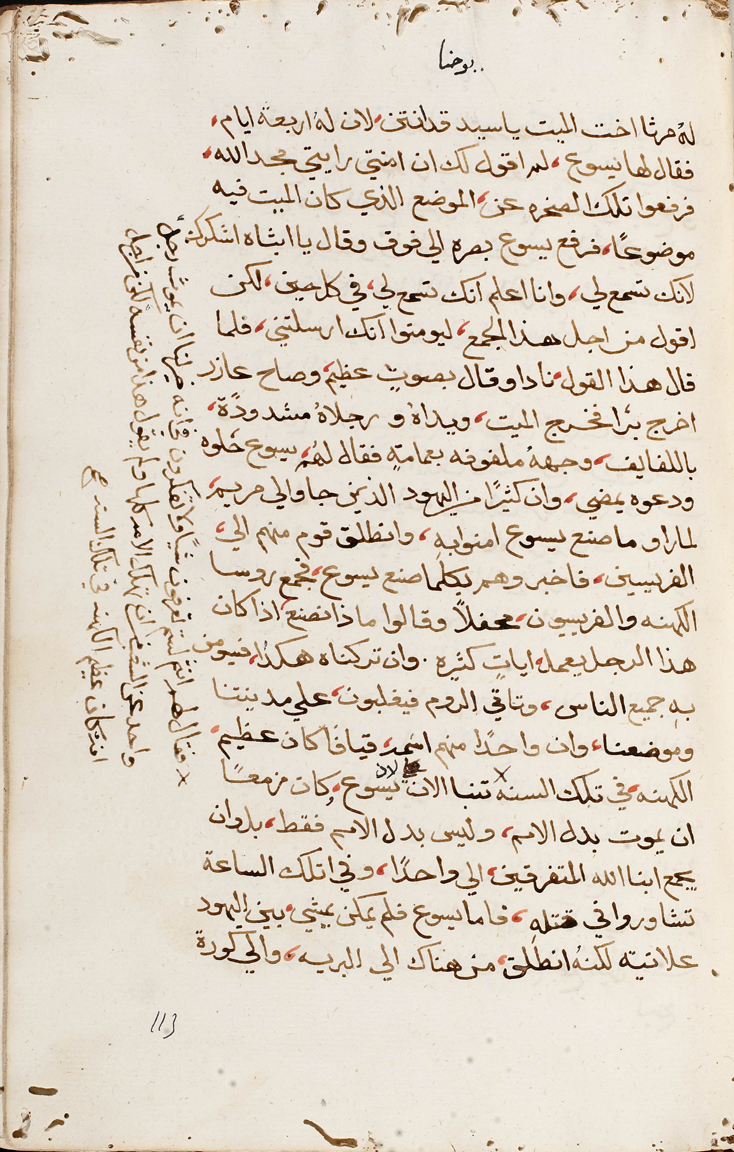 يوحنا
لهُ مرثا اخت الميت ياسيد قد انتن، لان لهُ اربعة ايام،
فقال لها يسوع، لم اقول لك ان امنتي رايتي مجد الله،
فرفعوا تلك الصخره عن، الموضع الذي كان الميت فيه
موضوعًا، فرفع يسوع بصره الي فوق وقال يا ابتاه اشكرك،
لانك تسمع لي، وانا اعلم انك تسمع لي، في كل حين، لكن
اقول من اجل هذا الجمع، ليومنوا انك ارسلتني، فلما
قال هذا القول، نادا وقال بصوتٍ عظيم، وصاح عازر
اخرج برًا فخرج الميت، ويداهُ و رجلاهُ مشدودةً،
باللفايف، وجههُ ملفوفه بعمامتهٍ فقال لهُم، يسوع حُلوه
ودعوه يمضي، وان كثيرًا من اليهود الذين جاوا الي مريم،
لماراو ما صنع يسوع امنوا بهِ، وانطلق قوم منهم الي،
الفريسيين، فاخبروهم بكلما صنع يسوع، فجمع روسا
الكهنه والفريسيون، محفلاً وقالوا ماذا نصنع، اذا كان
هذا الرجل يعمل، اياتٍ كثيره. وان تركناه هكذا، فيومن
بهِ جميع الناس، وتاتي الروم فيغلبون، علي مدينتنا
وموضعنا، وان واحدًا منهم اسمه، قيافا كان عظيم،
الكهنه، في تلك السنة × تنبا الان لاد يسوع، كان مزمعًا
ان يموت بدل الامم، وليس بدل الامم فقط، بل وان
يجمع ابنا الله المتفرقين، الي واحدًا، وفي اتلك الساعة
تشاوروا في قتلهِ، فاما يسوع فلم يمكن يمشي، بين اليهود
علانيته لكنهُ انطلق، من هناك الي البريه، والي كورة
× فقال لهم انتم لستم تعرفون شيًا ولا تفكرون فانه خير لنا ان يموت رجل
واحد عن الشعب، من ان تهلك الامه كلها ولم يقول هذا من نفسه لكن من اجل
انه كان عظيم الكهنه في تلك السنه صح
113